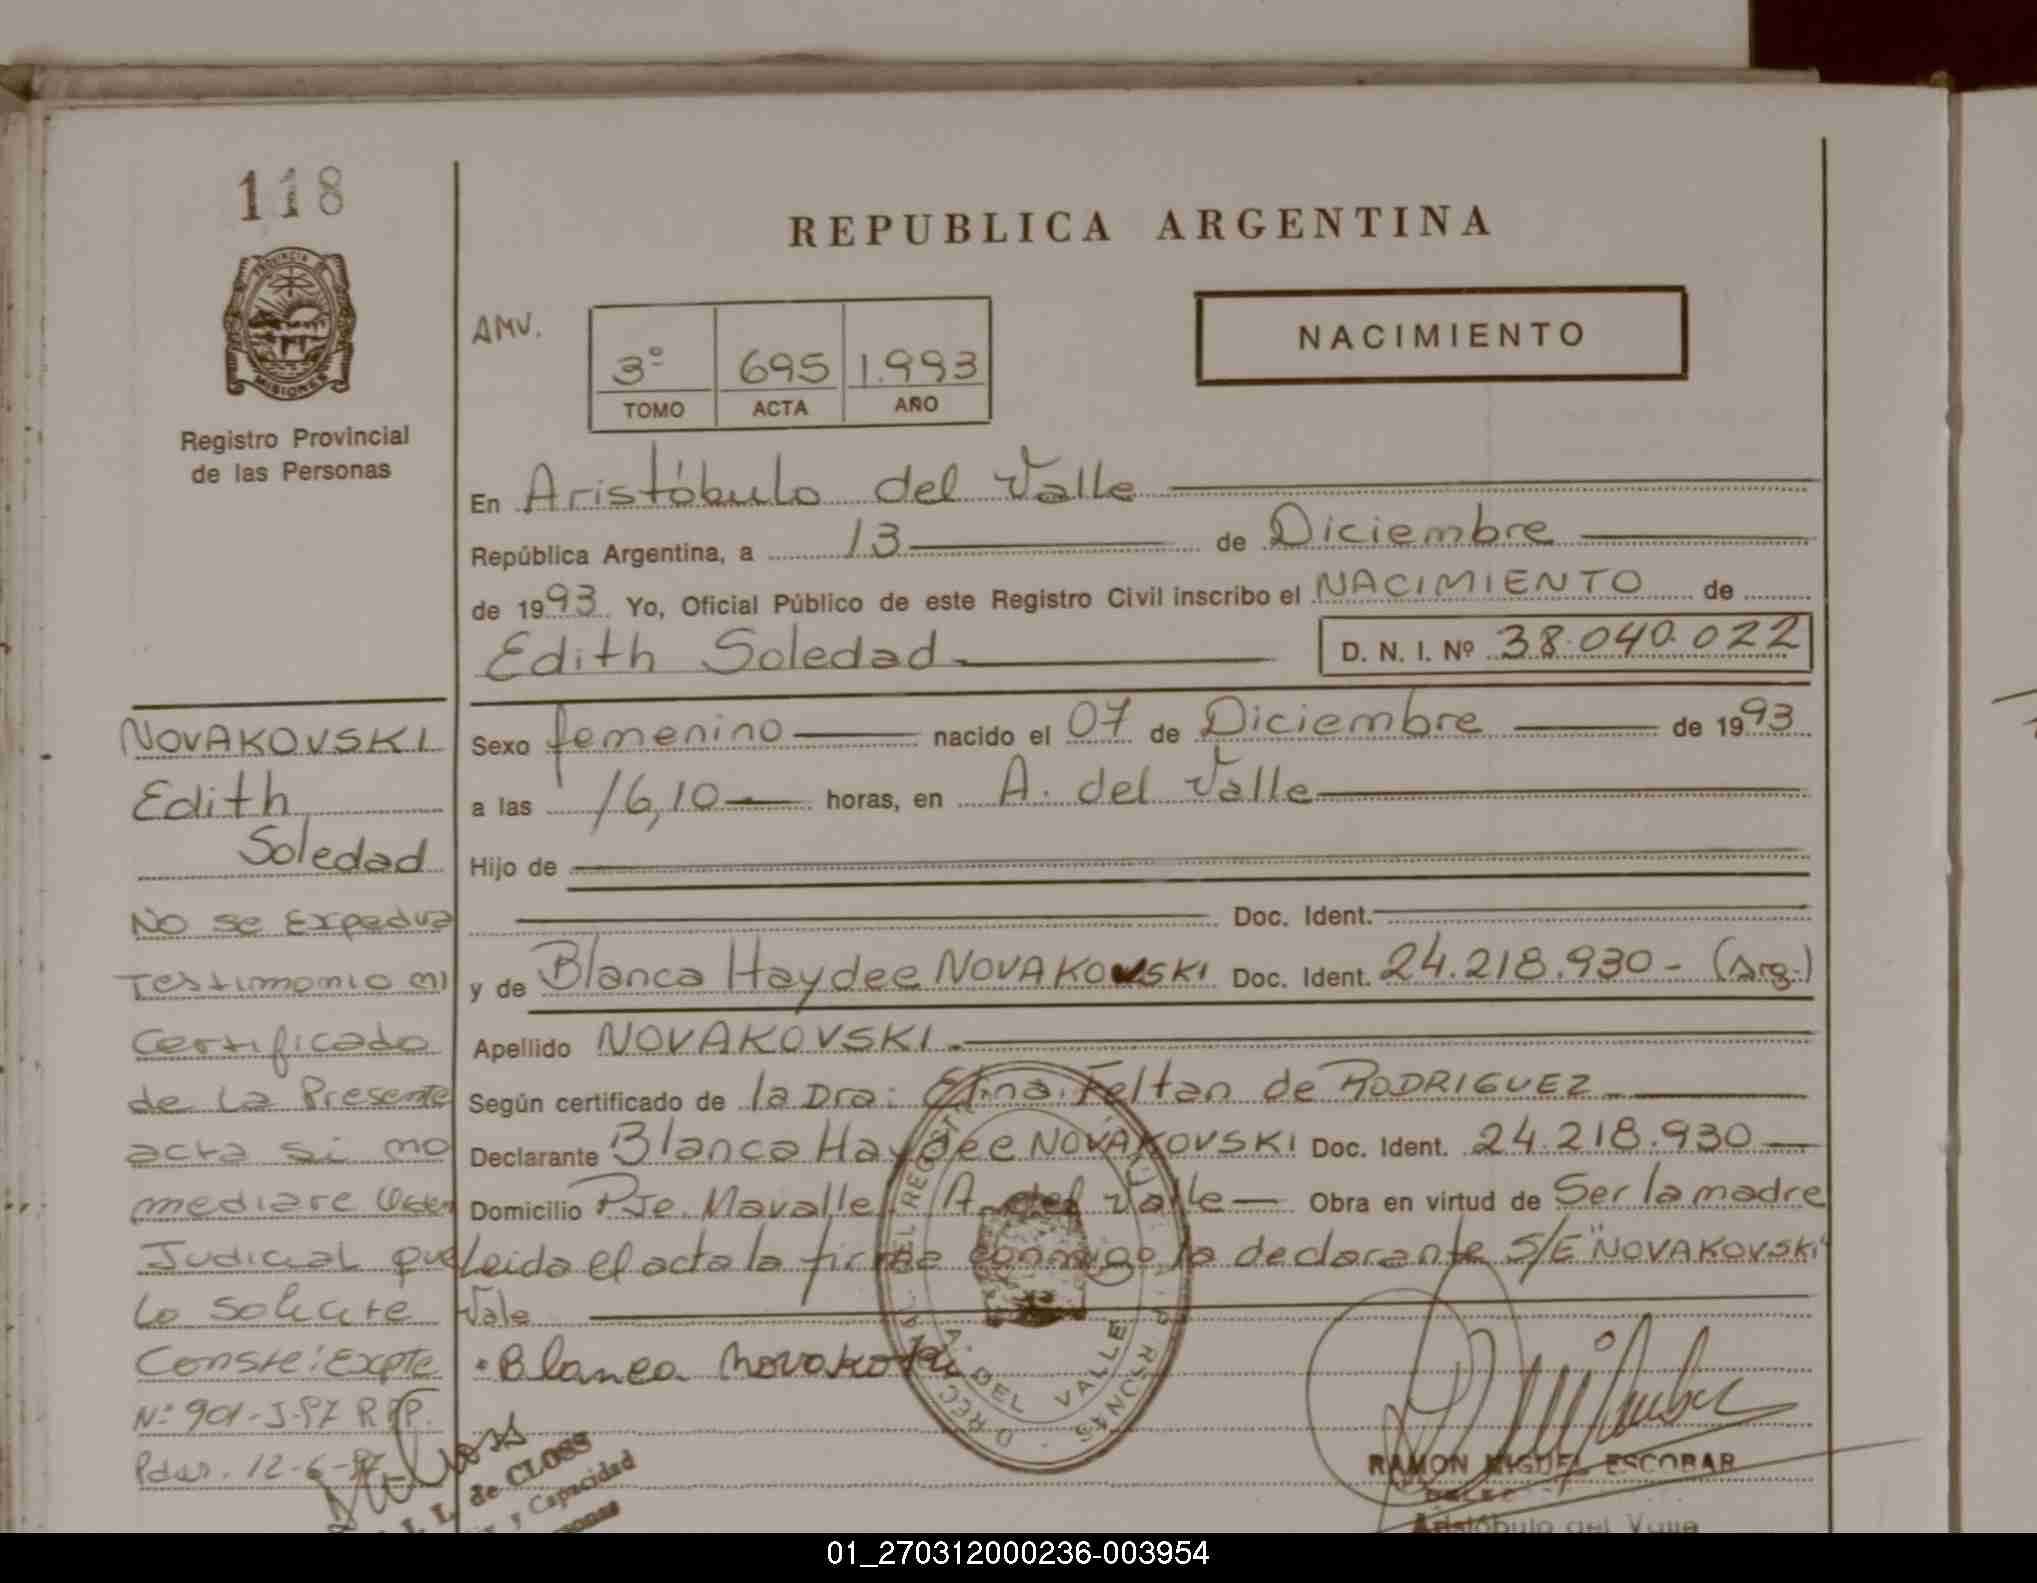 118
PROVINCIA DE
MISIONES
Registro Provincial
de las Personas
REPUBLICA ARGENTINA
AMV.
3º 695 1.993
TOMO ACTA AÑO
NACIMIENTO
En Aristóbulo del Valle
República Argentina, a 13 de Diciembre
de 1993 Yo, Oficial Público de este Registro Civil inscribo el NACIMIENTO de
Edith Soledad D. N. I. Nº 38.040.022
Sexo femenino nacido el 07 de Diciembre de 1993
a las 16,10 horas, en A. del Valle
Hijo de
Doc. Ident.
y de Blanca Haydee NOVAKOVSKI Doc. Ident. 24.218.930 - (Arg.)
Apellido NOVAKOVSKI
Según certificado de la Dra: Feltan de RODRIGUEZ
Declarante Blanca Haydee NOVAKOVSKI Doc. Ident. 24.218.930
Domicilio Pje. Mavalle A. del Valle Obra en virtud de Ser la madre
Leida el acta la firma conmigo la declarante S/E "NOVAKOVSKI"
Vale
Blanca Novakoski
NOVAKOVSKI
Edith
Soledad
No se Expedira
Testimonio ni
Certificado
de La Presente
acta si no
mediare Orden
Judicial que
Lo solicite
Conste: Expte
Nº 901-J-97 R.P.P.
Pdas. 12-6-97
de CLOSS
y Capacidad
A. DEL VALLE
RAMON MIGUEL ESCOBAR
Aristóbulo del Valle
01_270312000236-003954